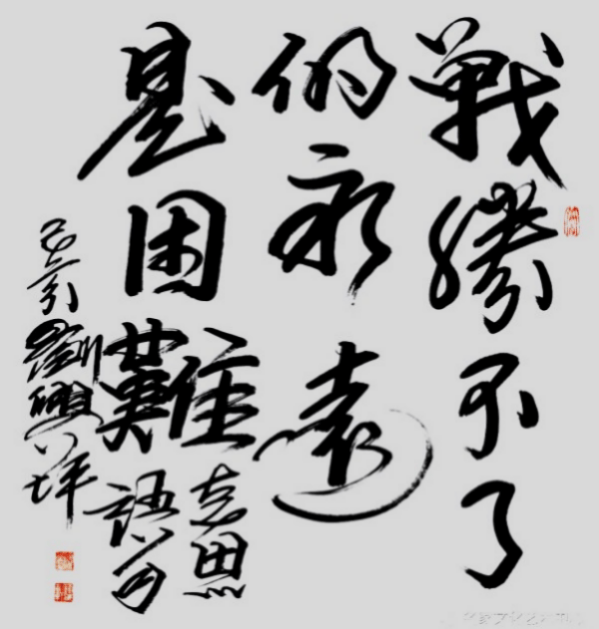 戰勝不了
的永遠
是困難
思
語
己亥劉